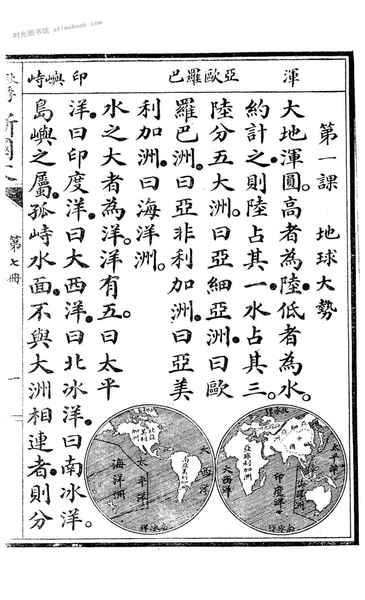 时光图书馆 stimebook.com
渾
亞歐羅巴
印嶼峙
第一課 地球大勢
大地渾圓。高者為陸。低者為水。
約計之。則陸占其一。水占其三。
陸分五大洲。曰亞細亞洲。曰歐
羅巴洲。曰亞非利加洲。曰亞美
利加洲。曰海洋洲。
水之大者為洋。洋有五。曰太平
洋。曰印度洋。曰大西洋。曰北冰洋。曰南冰洋。
島嶼之屬。孤峙水面。不與大洲相連者。則分
新國文
第七冊
一
太平洋
海洋洲
大西洋
北冰洋
大西洋
印度洋
南冰洋